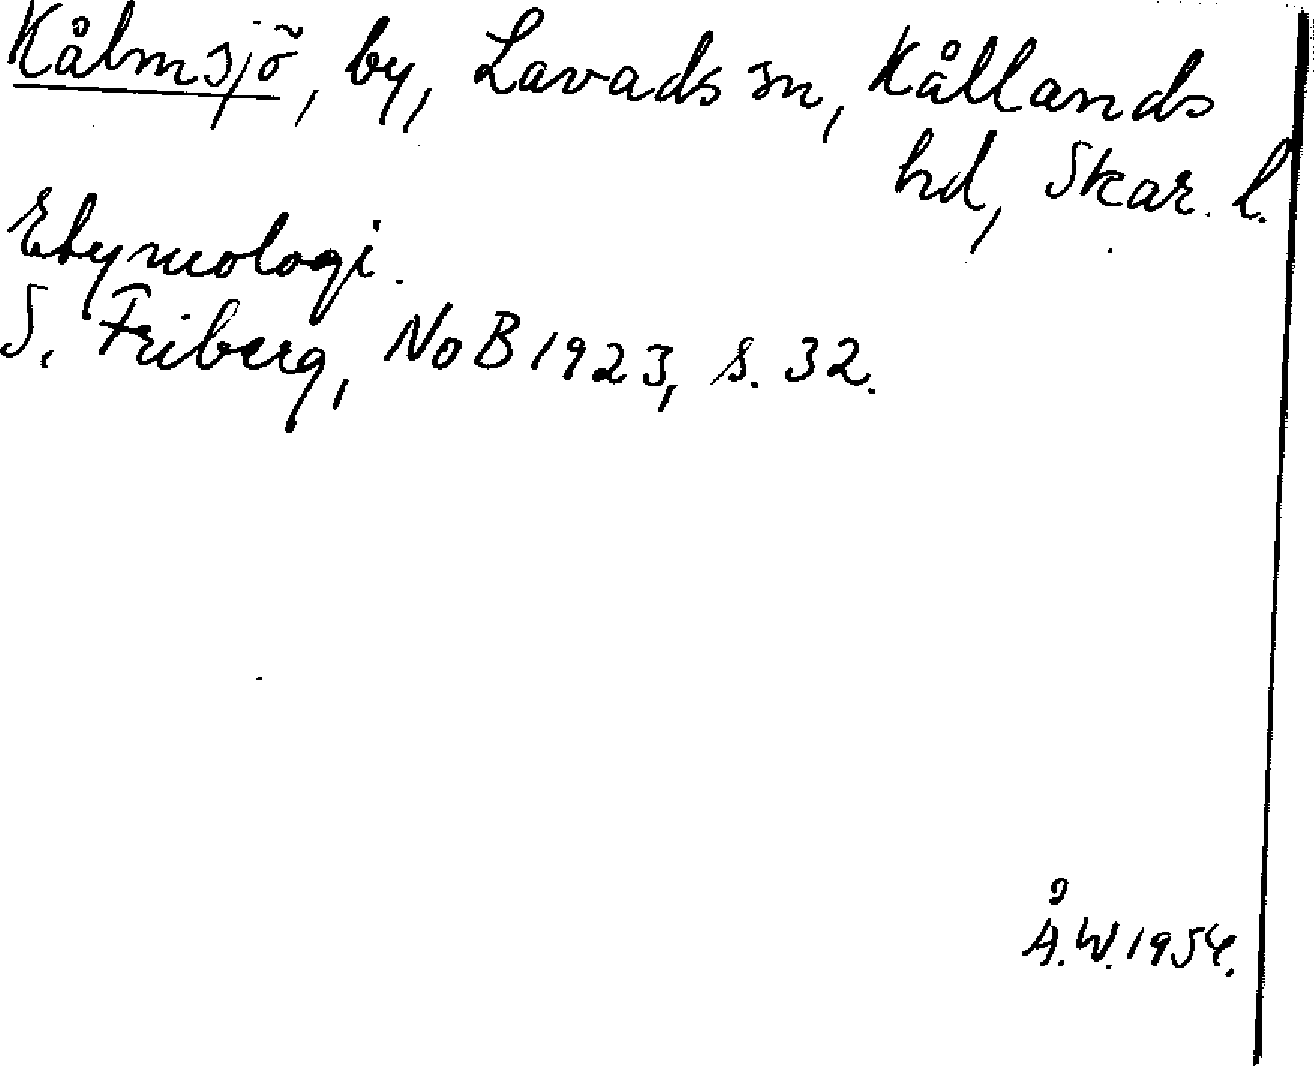 Kålmsjö, by, Lavads sn, Kållands
hd, Skar. l.
Etymologi.
S. Friberg, NoB 1923, s. 32.
Å.W. 1954.